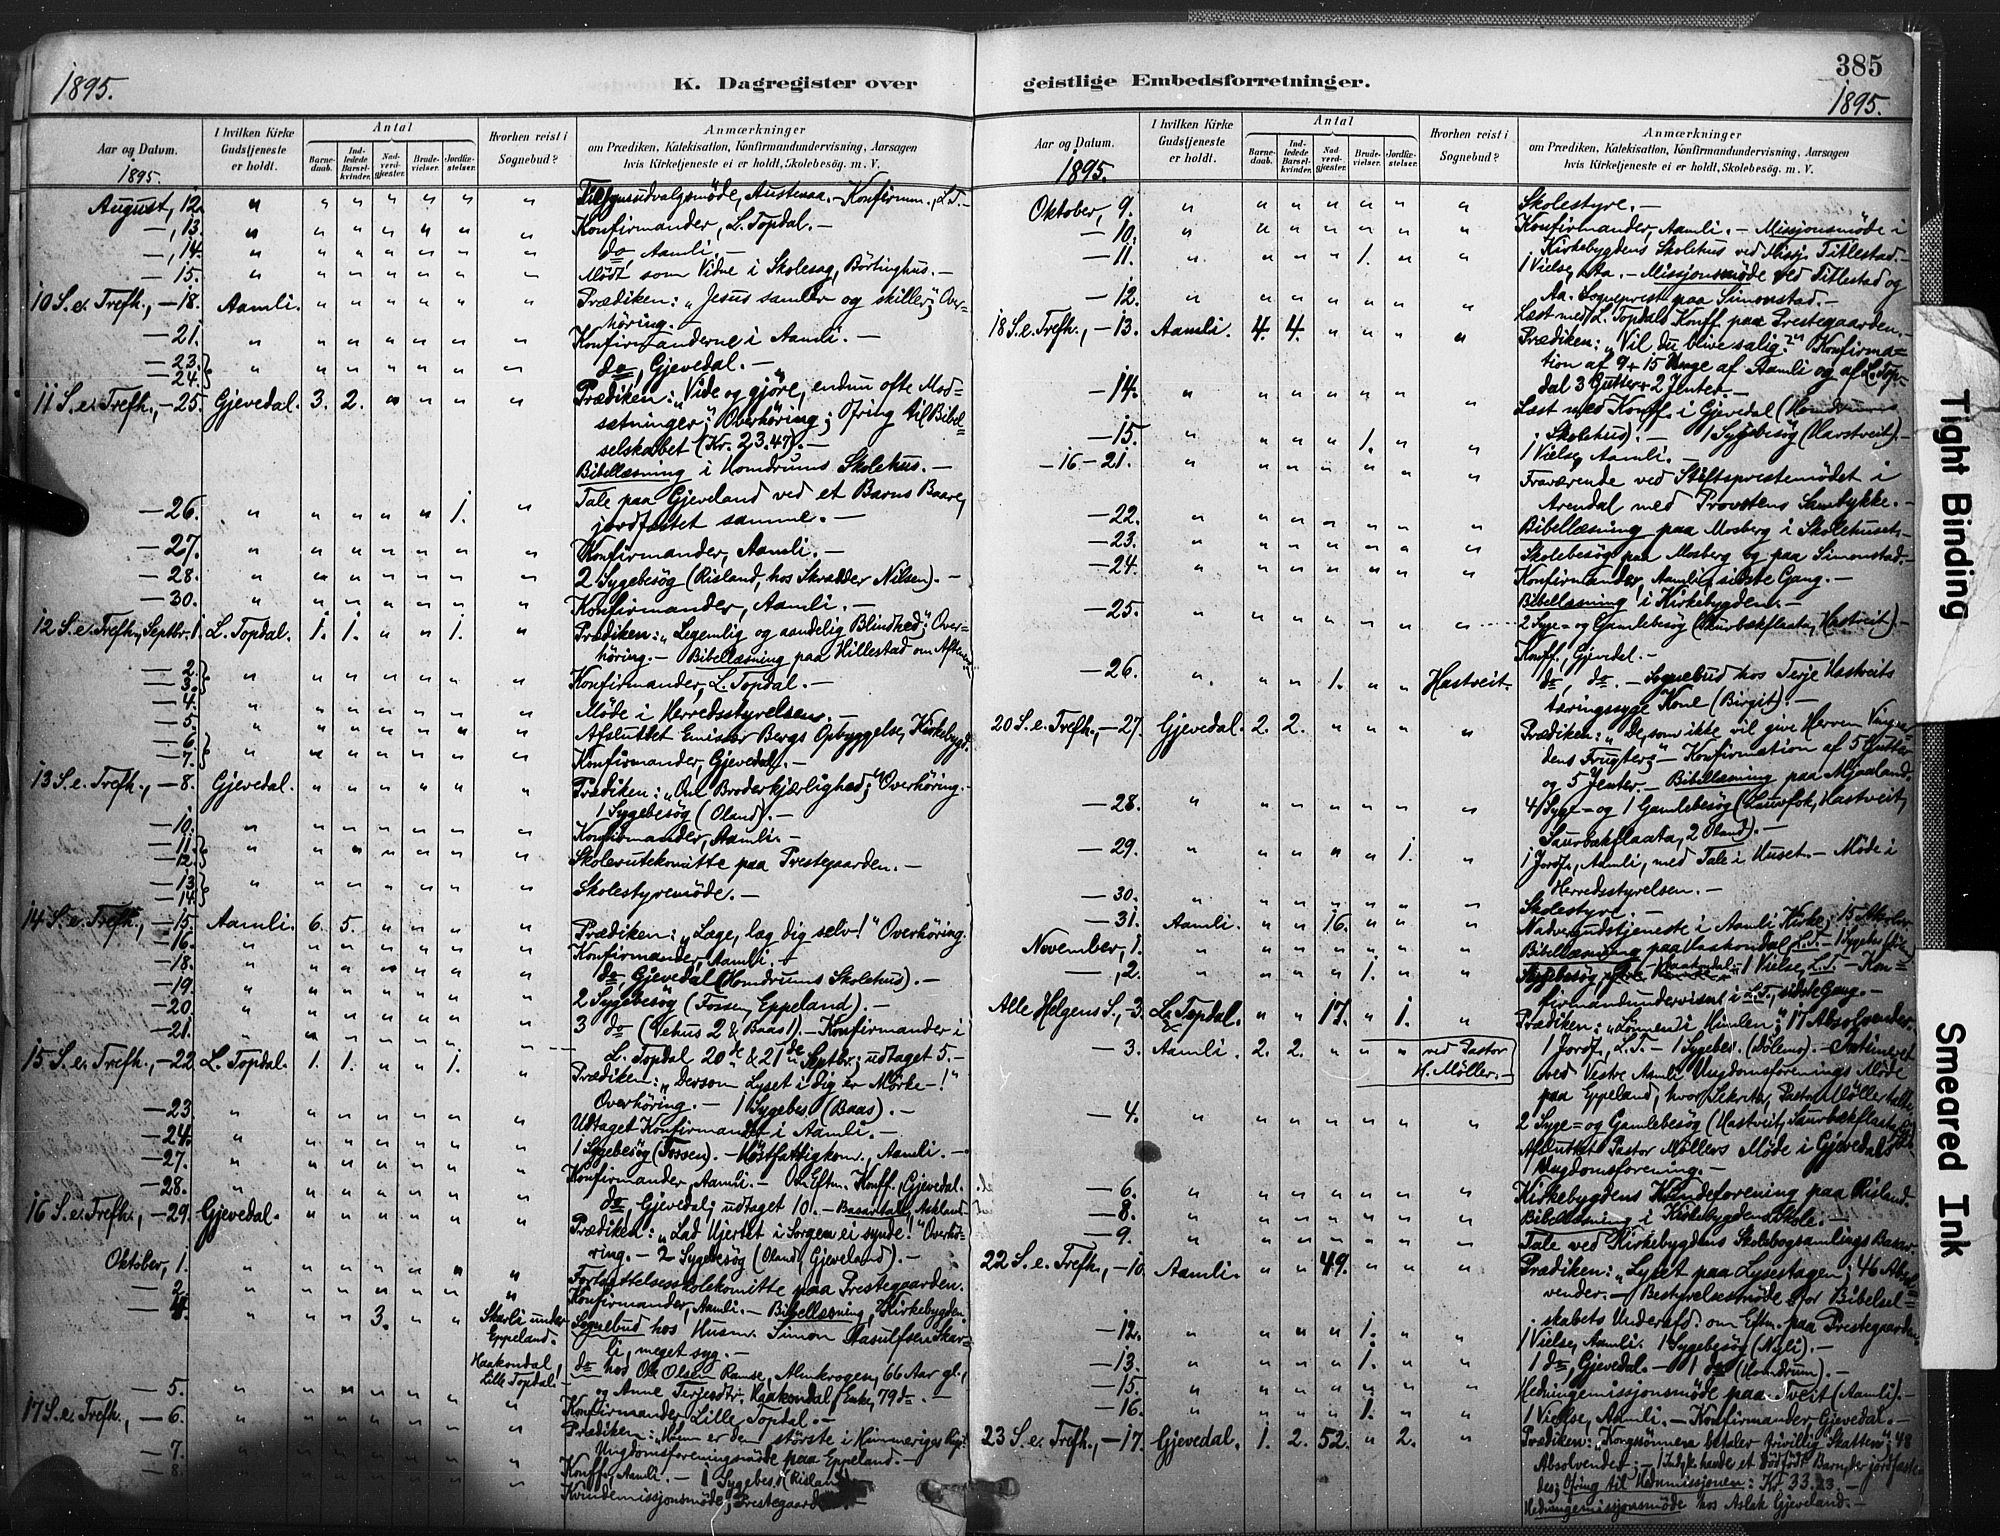 1895.
K. Dagregister over
Aar og Datum.
1895.
I hvilken Kirke Gudstjeneste er holdt.
Antal
Barne-daab.
Ind-ledede Barsel-kvinder.
Nad-verd-gjester.
Brude-vielser.
Jordfæ-stelser.
Hvorhen reist i Sognebud?
Anmærkninger
om Prædiken, Katekisation, Konfirmandundervisning, Aarsagen
hvis Kirketjeneste ei er holdt, Skolebesög. m. V.
August, 12. " " " " " " " Tilsynsudvalgsmöde, Austenaa. – Konfirm., L.T. –
—, 13. " " " " " " " Konfirmander, L. Topdal. –
—, 14. " " " " " " " do, Aamli. –
— 15. " " " " " " " Mödt som Vidne i Skolesag, Börtinghus. –
10 S. e. Trefh., – 18. Aamli. " " " " " " Prædiken: „Jesus samler og skiller"; Over=
höring. –
— 21. " " " " " " " Konfirmanderne i Aamli. –
— 23. 24. " " " " " " " do, Gjevedal. –
11 S. e. Trefh., – 25. Gjevedal. 3. 2. " " " " Prædiken: „Vide og gjöre, endnu ofte Mod=
sætninger." Overhöring; Ofring til Bibel=
selskabet (Kr. 23.47). –
Bibellæsning i Homdrums Skolehus. –
— 26. " " " " " 1. " Tale paa Gjeveland ved et Barns Baare,
jordfæstet samme. –
— 27. " " " " " " " Konfirmander, Aamli. –
— 28. " " " " " " " 2 Sygebesög (Risland, hos Skrædder Nilsen). –
— 30. " " " " " " " Konfirmander, Aamli. –
12 S. e. Trefh., Septbr. 1. L. Topdal. 1. 1. " " 1. " Prædiken: „Legemlig og aandelig Blindhed"; Over=
höring. – Bibellæsning paa Hillestad om Aftenen
— 2. 3. " " " " " " " Konfirmander, L. Topdal. –
— 4. " " " " " " " Möde i Herredsstyrelsen. –
— 5. " " " " " " " Afsluttet Emissær Bergs Opbyggelse, Kirkebygd.
— 6. 7. " " " " " " " Konfirmander, Gjevedal. –
13 S. e. Trefh., – 8. Gjevedal. " " " " " " Prædiken: „Om Broderkjærlighed"; Overhöring. –
1 Sygebesög (Oland). –
— 10. " " " " " " " Konfirmander, Aamli. –
— 11. 12. " " " " " " " Skolerutekomitte paa Prestegaarden. –
— 13. 14. " " " " " " " Skolestyremöde. –
14 S. e. Trefh., – 15. Aamli. 6. 5. " " " " Prædiken: „Læge, læg dig selv!" Overhöring.
— 16. " " " " " " " Konfirmander, Aamli. –
— 18. " " " " " " " do, Gjevedal (Homdrums Skolehus). –
— 19. " " " " " " " 2 Sygebesög (Fossen, Eppeland). –
— 20. " " " " " " " 3 do (Vehus 2 & Baas 1). – Konfirmander i
— 21. " " " " " " " L. Topdal 20de & 21de Septbr; udtaget 5. –
15 S. e. Trefh., – 22. L. Topdal. 1. 1. " " 1. " Prædiken: „Dersom Lyset i dig er Mörke –!"
Overhöring. – 1 Sygebes. (Baas). –
— 23. " " " " " " " Udtaget Konfirmander i Aamli. –
— 24. " " " " " " " 1 Sygebesög (Fossen). – Höstfattigkom., Aamli. –
— 27. " " " " " " " Konfirmander, Aamli. – Om Eftm. Konff., Gjevedal.
— 28. " " " " " " " do, Gjevedal; udtaget 10. – Basartale, Askland.
16 S. e. Trefh., – 29. Gjevedal. " " " " " " Prædiken: „Lad Hjertet i Sorgen ei synde!" Overhö=
ring. – 2 Sygebesög (Oland, Gjeveland). –
Oktober, 1. " " " " " " " Fortsættelsesskolekomitte paa Prestegaarden.
— 2. " " " " " " " Konfirmander, Aamli. – Bibellæsning, Kirkebygden.
— 4. " " " 3. " " Skarli under Eppeland. Sognebud hos Husm. Simon Aasulfsen Skar=
li, meget syg. –
Haakondal, Lille Topdal. do hos Ole Olsen Ramse, Almkrogen, 66 Aar gl.,
— 5. " " " " " " og Anne Terjesdtr. Haakondal, Enke, 79 do –
Konfirmander Lille Topdal. –
17 S. e. Trefh., – 6. " " " " " " " Prædiken: „Hvem er den störste i Himmeriges Rige"
Ungdomsforeningsmöde paa Eppeland. –
— 7. Konff., Aamli. – 1 Sygebes. (Risland
— 8. Kvindemissjonsmöde, Prestegaard
geistlige Embedsforretninger.
385
1895.
Aar og Datum.
1895.
I hvilken Kirke Gudstjeneste er holdt.
Antal
Barne-daab.
Ind-ledede Barsel-kvinder.
Nad-verd-gjester.
Brude-vielser.
Jordfæ-stelser.
Hvorhen reist i Sognebud?
Anmærkninger
om Prædiken, Katekisation, Konfirmandundervisning, Aarsagen
hvis Kirketjeneste ei er holdt, Skolebesög. m. V.
Oktober, 9. " " " " " " " Skolestyre. –
— 10. " " " " " " " Konfirmander, Aamli. – Missjonsmöde i
Kirkebygdens Skolehus ved Missj. Titlestad. –
— 11. " " " " 1. " " 1 Vielse, Aa. – Missjonsmöde ved Titlestad og
Aa. Sogneprest paa Simonstad. –
— 12. " " " " " " " Læst med L. Topdals Konff. paa Prestegaarden. –
18 S. e. Trefh., – 13. Aamli. 4. 4. " " " " Prædiken: „Vil du blive salig?" Konfirma=
tion af 9 + 15 Unge af Aamli og af L. Top=
dal 3 Gutter + 2 Jenter. –
— 14. " " " " " " " Læst med Konff. i Gjevedal (Homdrums
Skolehus). – 1 Sygebesög (Harstveit). –
— 15. " " " " 1. " " 1 Vielse, Aamli. –
— 16 – 21. " " " " " " " Fraværende ved Stiftsprestemödet i
Arendal med Provstens Samtykke. –
— 22. " " " " " " " Bibellæsning paa Mosberg i Skolehuset. –
— 23. " " " " " " " Skolebesög paa Mosberg og paa Simonstad. –
— 24. " " " " " " " Konfirmander, Aamli, sidste Gang. –
Bibellæsning i Kirkebygden. –
— 25. " " " " " " " 2 Syge= og Gamlebesög (Saurbækflaata, Hastveit). –
Konff., Gjevedal. –
— 26. " " " 1. " " Hastveit. do, do. – Sognebud hos Terje Hastveits
tæringssyge Kone (Birgit). –
20 S. e. Trefh., – 27. Gjevedal. 2. 2. " " " " Prædiken: „De, som ikke vil give Herren Vingaar=
dens Frugter"; – Konfirmation af 5 Gutter
og 5 Jenter. – Bibellæsning paa Mjaaland.
— 28. " " " " " " " 4 Syge= og 1 Gamlebesög (Lauvfok, Hastveit,
Saurbækflaata, 2 Oland). –
— 29. " " " " " 1. " 1 Jordf., Aamli, med Tale i Huset. – Möde i
Herredsstyrelsen. –
— 30. " " " " " " " Skolestyre. –
— 31. Aamli. " " 16. " " " Nadverdstjeneste i Aamli Kirke; 15 Absolv.
November, 1. " " " " " " " Bibellæsning paa Haakondal, L.T. – 1 Sygebes.
—, 2. " " " " 1. " " 1 Vielse, L.T. – Kon=
firmandundervisn. i L.T., sidste Gang. –
Alle Helgens S., – 3. L. Topdal. " " 17. " 1. " Prædiken: „Lönnen i Himlen"; 17 Absolvender.
— 3. Aamli. 2. 2. " " " ved Pastor H. Möller. – 1 Jordf., L.T. – 1 Sygebes. (Dölemo). – Intimeret
ved Vestre Aamli Ungdomsforenings Möde
paa Eppeland, hvor Sekretær, Pastor Möller talte.
— 4. " " " " " " " 2 Syge= og Gamlebesög (Hastveit, Saurbækflaata).
Afsluttet Pastor Möllers Möde i Gjevedals
Ungdomsforening. –
— 6. " " " " " " " Kirkebygdens Kvindeforening paa Risland.
— 8. " " " " " " " Bibellæsning i Kirkebygdens Skole. –
— 9. " " " " " " " Tale ved Kirkebygdens Skolebogsamlings Basar.
22 S. e. Trefh., – 10. Aamli. " " 49. " " " Prædiken: „Lyset paa Lysestagen"; 46 Absol=
vender. – Bestyrelsesmöde for Bibelsel=
skabets Underafd. om Eftm. paa Prestegaarden.
— 12. " " " " 1. " " 1 Vielse, Aamli. 1 Sygebesög (Nyli). –
— 13. " " " " 1. " " 1 do, Gjevedal. – 1 do (Homdrum). –
— 15. " " " " " " " Hedningemissjonsmöde paa Tveit (Aamli). –
— 16. " " " " 1. " " 1 Vielse, Aamli. – Konfirmander, Gjevedal. –
23 S. e. Trefh., – 17. Gjevedal. 1. 2. 52. " 2. " Prædiken: „Kongsönnen betaler frivillig Skatten"; 48
Absolvender; – 1 Indl. havde et dödfödt Barn, der jordfæste=
des; Ofring til Hednmissjonen: Kr. 33.23. –
Hedningemissjonsmöde hos Aslak Gjeveland. –
Tight Binding
Smeared Ink